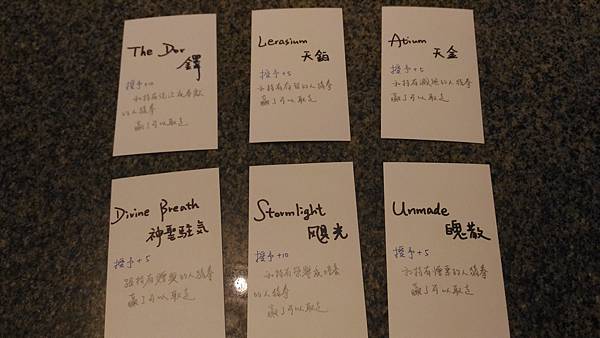 The Dor
鐸
授予+10
和持有統治或奉獻
的人猜拳
贏了可以取走
Lerasium
天鉑
授予+5
和持有存留的人猜拳
贏了可以取走
Atium
天金
授予+5
和持有滅絕的人猜拳
贏了可以取走
Divine Breath
神聖駐気
授予+5
跟持有的人猜拳
贏了可以取走
Stormlight
颶光
授予+10
和持有榮譽或培養
的人猜拳
贏了可以取走
Unmade
魄散
授予+5
和持有憎惡的人猜拳
贏了可以取走